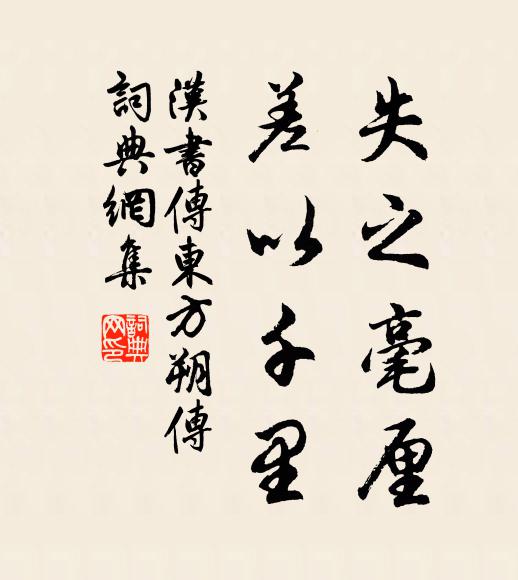 失之毫厘
差以千里
漢書傳東方朔傳
詞典網集
詞典網印